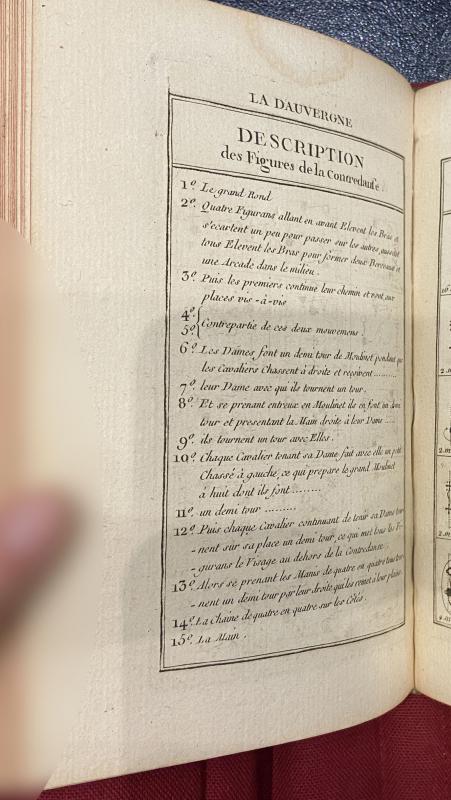 LA DAUVERGNE
DESCRIPTION
des Figures de la Contredanse.
1º. Le grand Rond
2º. Quatre Figurans allant en avant Elevent les Bras et
s'ecartent un peu pour passer sur les autres, aussitot
tous Elevent les Bras pour former deux Berceaux et
une Arcade dans le milieu.
3º. Puis les premiers continue leur chemin et vont aux
places vis-à-vis
4º.
5º. { Contrepartie de ces deux mouvemens.
6º. Les Dames font un demi tour de Moulinet pendant que
les Cavaliers Chassent à droite et reçoivent .........
7º. leur Dame avec qui ils tournent un tour.
8º. Et se prenant entreux en Moulinet ils en font un demi
tour et presentant la Main droite à leur Dame ....
9º. ils tournent un tour avec Elles.
10º. Chaque Cavalier tenant sa Dame fait avec elle un petit
Chassé à gauche, ce qui prepare le grand Moulinet
à huit dont ils font ........
11º. un demi tour .........
12º. Puis chaque Cavalier continuant de tenir sa Dame tour
-nent sur sa place un demi tour, ce qui met tous les Fi-
-gurans le Visage au dehors de la Contredanse.
13º. Alors se prenant les Mains de quatre en quatre tous tour
-nent un demi tour par leur droite qui les remet à leur places
14º. La Chaine de quatre en quatre sur les Côtés.
15º. La Main.